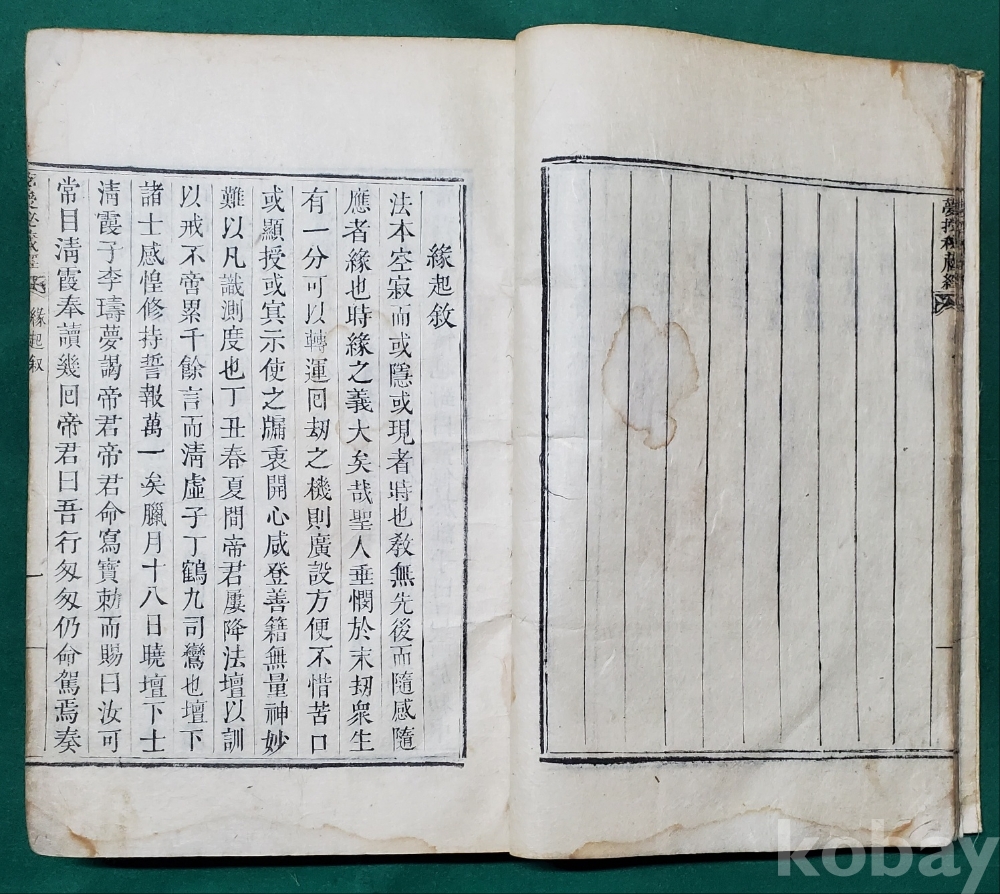 緣起敘
法本空寂而或隱或現者時也敎無先後而隨感隨
應者緣也時緣之義大矣哉聖人垂憫於末刼衆生
有一分可以轉運囘刼之機則廣設方便不惜苦口
或顯授或冥示使之牖衷開心咸登善籍無量神妙
難以凡識測度也丁丑春夏間帝君屢降法壇以訓
以戒不啻累千餘言而淸虛子丁鶴九司鸞也壇下
諸士感惶修持誓報萬一矣臘月十八日曉壇下士
淸霞子李𤩴夢謁帝君帝君命寫寶勅而賜曰汝可
常目淸霞奉讀幾囘帝君曰吾行匆匆仍命駕焉奏
緣起叙
kobay